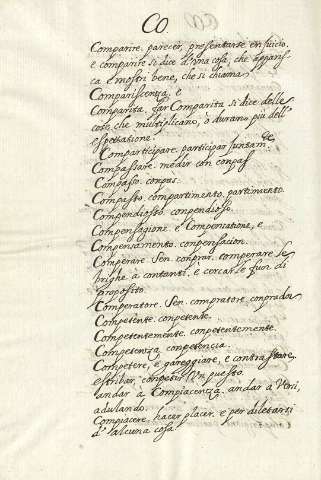 CO.
Comparire. parecer, presentarse en juicio.
e comparire si dice d'una cosa, che apparis-
ca e mostri bene, che si chiama
Compariscenza. e
Comparita, far Comparita si dice delle
cose, che multiplicano, ò durano più dell'
espetatione.
Comparticipare. participar juntam.te
Compassare. medir con compas
Compasso. compas.
Compasto compartimento. partimento.
Compendiosso. conpendioso.
Compensagione. e Compensatione, e
Compensamento. conpensacion.
Comperare. Sen. comprar. comperare le
brighe à contanti. e cercarle fuor di
proposito.
Comperatore. Sen. compratore, conprador
Competente. conpetente.
Competentemente. conpetentemente.
Competenza. conpetencia.
Competere, e gareggiare, e contrastare,
estribar, conpetir Un puesto.
andar à Compiacenza, andar à Versi,
adulando.
Compiacere, hacer placer. e per dilettarsi
d'alcuna cosa